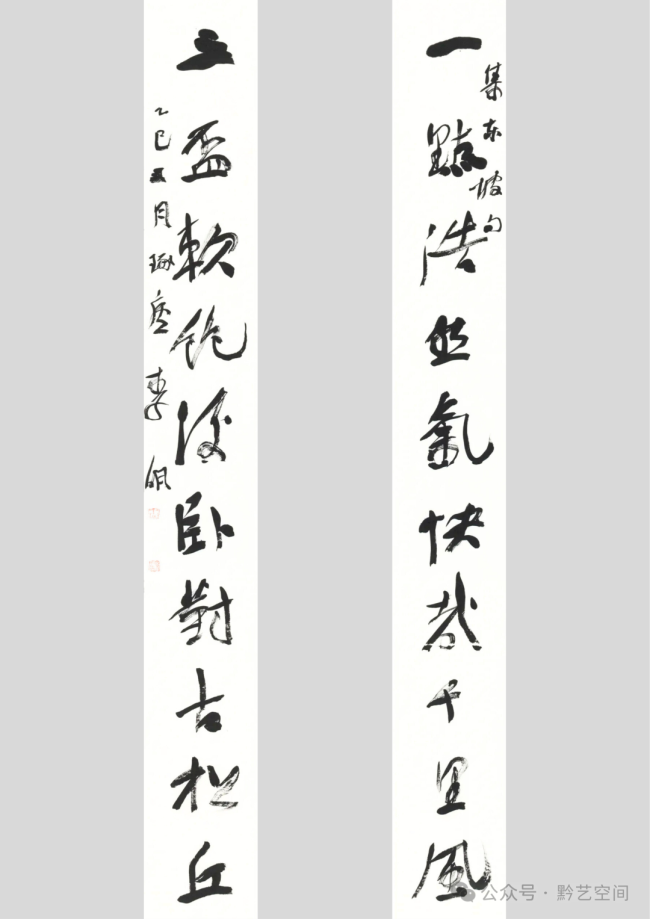 一點浩然氣快哉千里風
集東坡句
三盃軟飽後臥對古松丘
乙巳五月琢李
公众号 · 黔艺空间